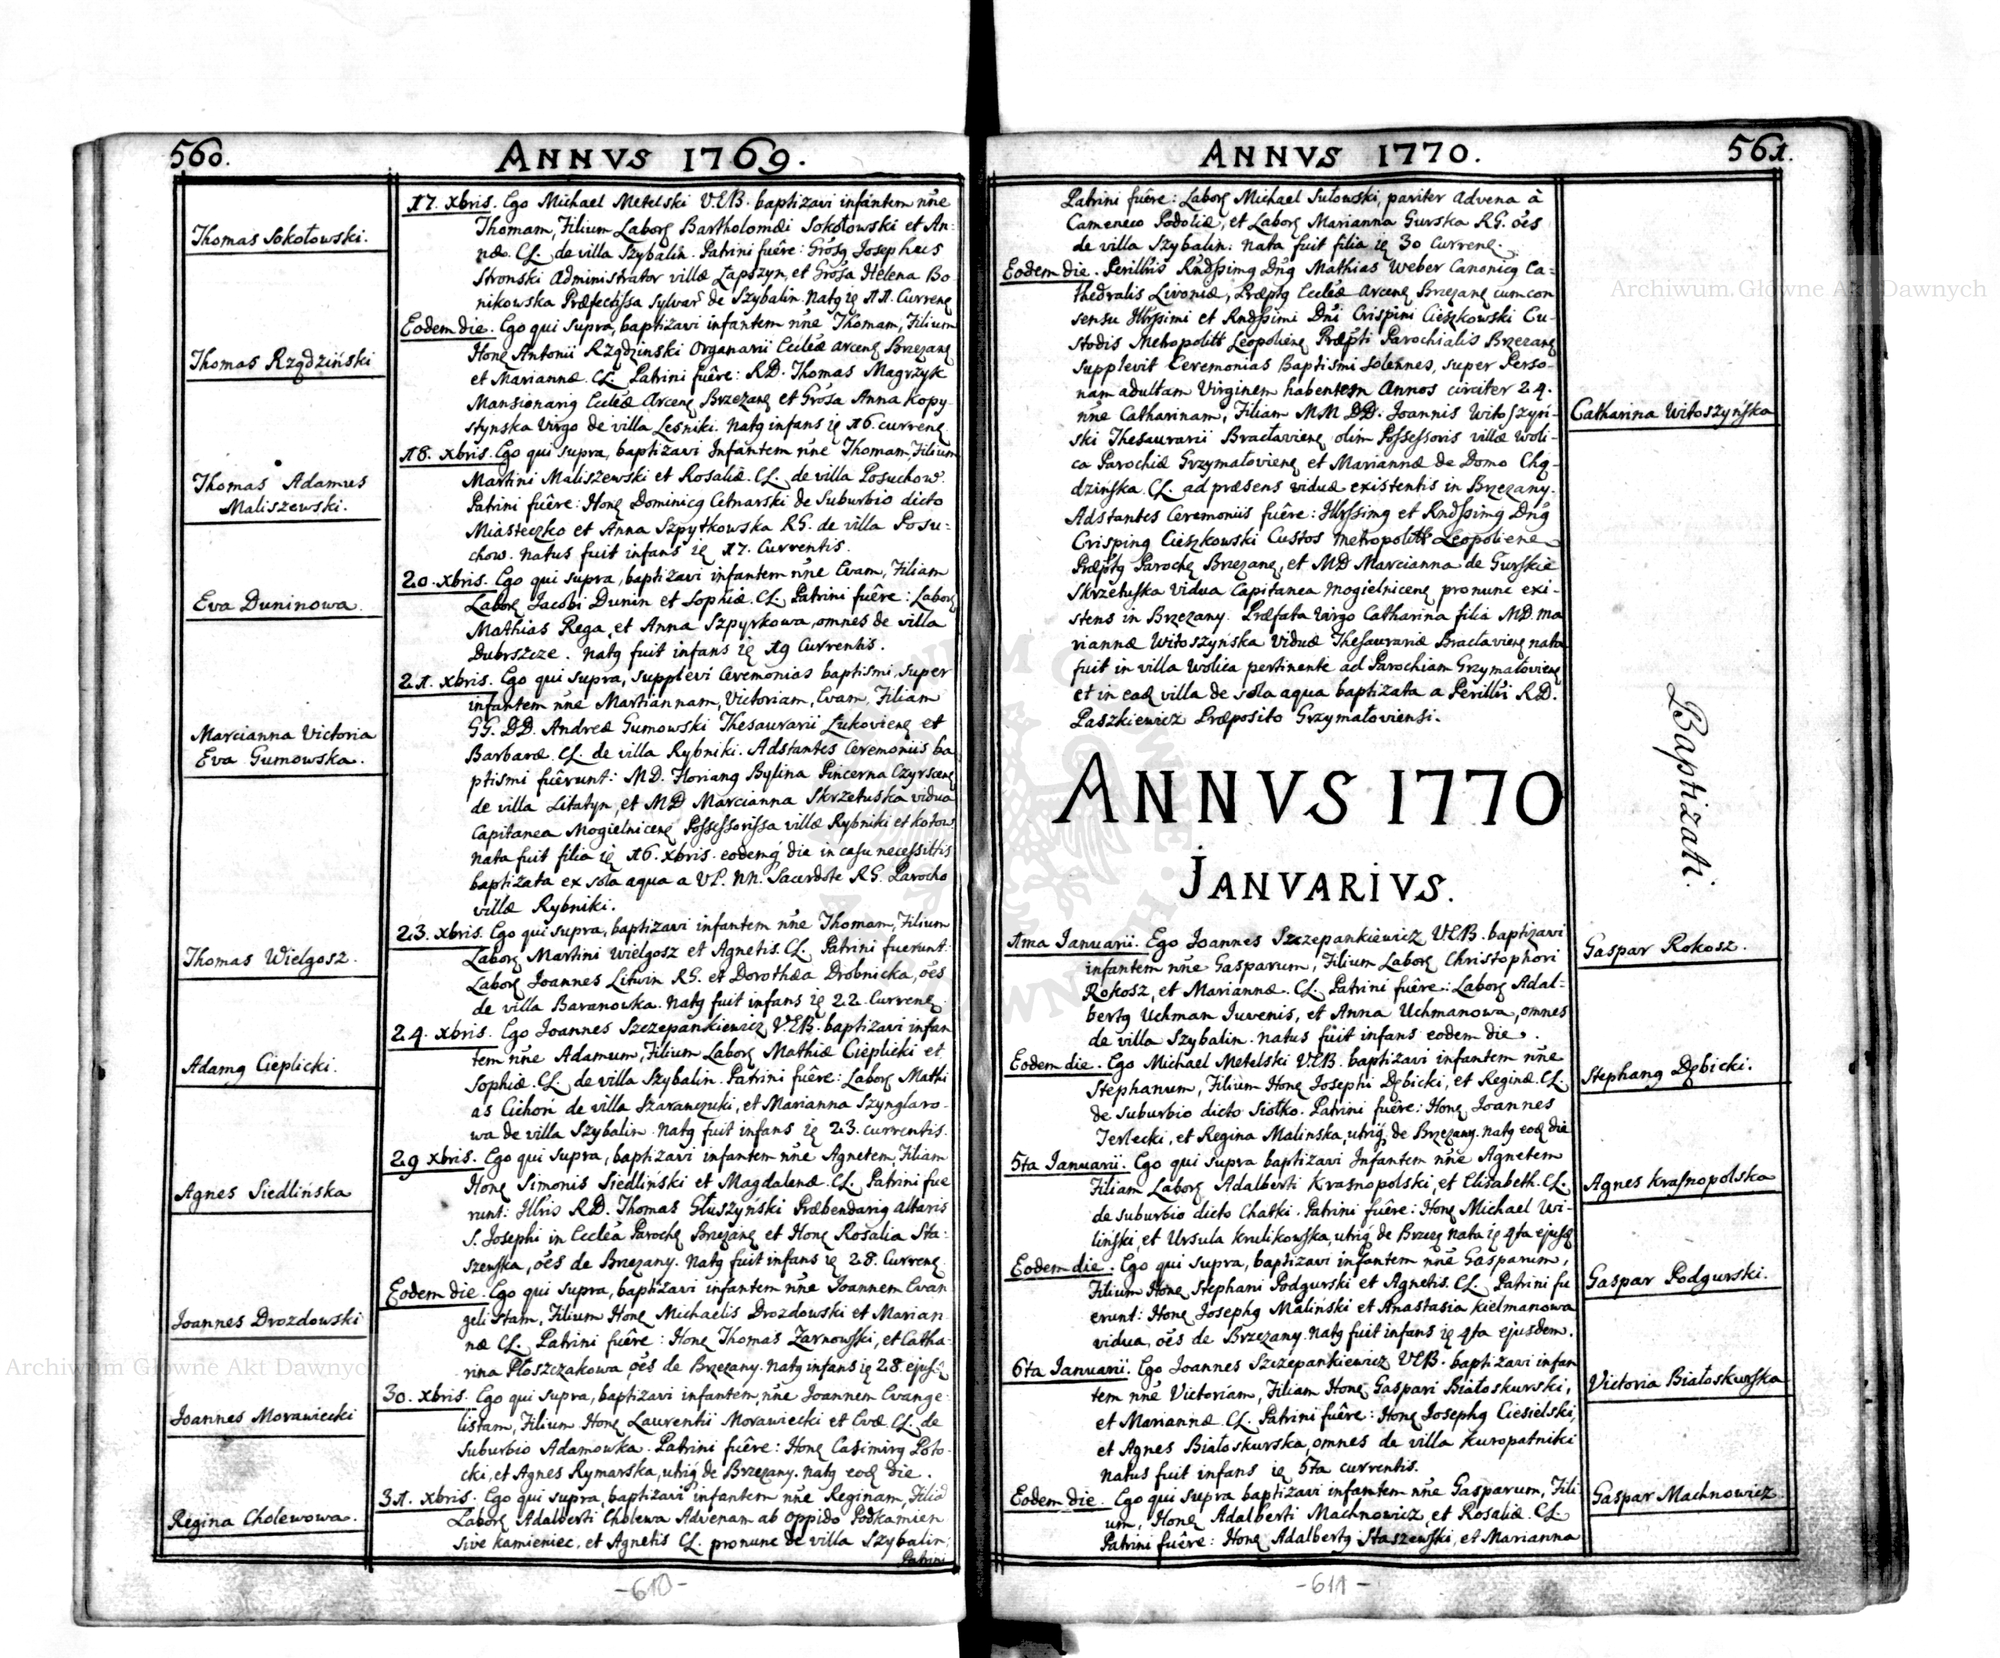 560.
ANNVS 1769.
Thomas Sokołowski.
Thomas Rządziński
Thomas Adamus
Maliszewski.
Eva Duninowa.
Marcianna Victoria
Eva Gumowska.
Thomas Wielgosz.
Adamꝰ Cieplicki.
Agnes Siedlińska
Joannes Drozdowski
Joannes Morawiecki
Regina Cholewowa.
17. xbris. Ego Michael Metelski VEB. baptizavi infantem nñe
Thomam, Filium Laborꝭ Bartholomæi Sokołowski et An-
næ. CL. de villa Szybalin. Patrini fuêre: Grosꝰ Josephus
Stronski Administrator villæ Lapszyn, et Grosa Helena Bo-
nikowska Præfectissa sylvar̃ de Szybalin. Natꝰ ię 11. Currenꝭ
Eodem die. Ego qui supra, baptizavi infantem nñe Thomam, Filium
Honꝭ Antonii Rządzinski Organarii Ecclæ Arcenꝭ Brzezanꝭ
et Mariannæ. CL. Patrini fuêre: RD. Thomas Magrzyk
Mansionariꝰ Ecclæ Arcenꝭ Brzezanꝭ et Grosa Anna Kopy-
stynska Virgo de villa Lesniki. Natꝰ infans ię 16. currenꝭ
18. xbris. Ego qui supra, baptizavi Infantem nñe Thomam, Filium
Martini Maliszewski et Rosaliæ. CL. de villa Posuchow.
Patrini fuêre: Honꝭ Dominicꝰ Cetnarski de Suburbio dicto
Miasteczko et Anna Szpytkowska RG. de villa Posu-
chow. Natus fuit infans ię 17. Currentis.
20. xbris. Ego qui supra, baptizavi infantem nñe Evam, Filiam
Laborꝭ Jacobi Dunin et Sophiæ. CL. Patrini fuêre: Laborꝭ
Mathias Rega, et Anna Szpyrkowa, omnes de villa
Dubrszcze. Natꝰ fuit infans ię 19 Currentis.
21. xbris. Ego qui supra, supplevi Ceremonias baptismi, super
infantem nñe Martiannam, Victoriam, Evam, Filiam
GG. DD. Andreæ Gumowski Thesaurarii Lukovienꝭ et
Barbaræ. CL. de villa Rybniki. Adstantes Ceremoniis ba
ptismi fuêrunt: MD. Florianꝰ Bylina Pincerna Czyrscenꝭ
de villa Litatyn, et MD Marcianna Skrzetuska vidua
Capitanea Mogielnicenꝭ Possessorissa villæ Rybniki et Kotow
Nata fuit filia ię 16. xbris. eodemq́ die in casu necessittis
baptizata ex sola aqua a VP. NN. Sacerdote RG. Parocho
villæ Rybniki.
23. xbris. Ego qui supra, baptizavi infantem nñe Thomam, Filium
Laborꝭ Martini Wielgosz et Agnetis. CL. Patrini fuerunt.
Laborꝭ Joannes Litwin RG. et Dorothæa Drobnicka, oẽs
de villa Baranowka. Natꝰ fuit infans ię 22. Currenꝭ.
24. xbris. Ego Joannes Szczepankiewicz V.E.B. baptizavi infan
tem nñe Adamum, Filium Laborꝭ Mathiæ Cieplicki et
Sophiæ. CL. de villa Szybalin. Patrini fuêre: Laborꝭ Mathi
as Cichoń de villa Szaranczuki, et Marianna Szynglaro-
wa de villa Szybalin. Natꝰ fuit infans ię 23. currentis.
29 xbris. Ego qui supra, baptizavi infantem nñe Agnetem, Filiam
Honꝭ Simonis Siedliński et Magdalenæ. CL. Patrini fue
runt: Illris RD. Thomas Głuszyński Præbendariꝰ Altaris
S. Josephi in Ecclæa Parochꝭ Brzezanꝭ et Honꝭ Rosalia Sta-
szewska, oẽs de Brzezany. Natꝰ fuit infans ię 28. Currenꝭ.
Eodem die. Ego qui supra, baptizavi infantem nñe Joannem Evan
gelistam, Filium Honꝭ Michaelis Drozdowski et Marian
næ CL. Patrini fuêre: Honꝭ Thomas Zarnowski, et Catha-
rina Płoszczakowa, oẽs de Brzezany. Natꝰ infans ię 28 ejusꝭ
30. xbris. Ego qui supra, baptizavi infantem nñe Joannem Evange
listam, Filium Honꝭ Laurentii Morawiecki et Evæ CL. de
Suburbio Adamowka. Patrini fuêre: Honꝭ Casimirꝰ Poto-
cki, et Agnes Rymarska, utriq́ de Brzezany. Natꝰ eoꝭ die.
31. xbris. Ego qui supra, baptizavi infantem nñe Reginam, Filiã
Laborꝭ Adalberti Cholewa Advenam ab oppido Podkamien
sive Kamieniec, et Agnetis CL. pronunc de villa Szybalin:
Patrini
-610-
ANNVS 1770.
561.
Patrini fuêre: Laborꝭ Michael Sułowski, pariter Advena à
Cameneco Podoliæ, et Laborꝭ Marianna Gurska RG. oẽs
de villa Szybalin. Nata fuit filia ię 30 Currenꝭ.
Eodem die. Perillris Rñdssimꝰ Dñꝰ Mathias Weber Canonicꝰ Ca-
thedralis Livoniæ, Præptꝰ Ecclæ Arcenꝭ Brzezanꝭ cum con
sensu Illrssimi et Rndssimi Dñi Crispini Cieszkowski Cu-
stodis Metropolitt Leopolienꝭ Præpti Parochialis Brzezanꝭ
supplevit Ceremonias Baptismi solennes, super Perso-
nam adultam Virginem habentem Annos circiter 24.
nñe Catharinam, Filiam MM DD. Joannis Witoszyń-
ski Thesaurarii Bracłavienꝭ olim Possessoris villæ Woli-
ca Parochiæ Grzymałovienꝭ et Mariannæ de Domo Chą-
dzińska. CL. ad præsens viduæ existentis in Brzezany.
Adstantes Ceremoniis fuêre: Illrssimꝰ et Rndssimꝰ Dñꝰ
Crispinꝰ Cieszkowski Custos Metropolitt Leopoliene
Præptꝰ Parochꝭ Brzezanꝭ, et MD Marcianna de Gurskie
Skrzetuska Vidua Capitanea Mogielnicenꝭ pronunc exi-
stens in Brzezany. Præfata Virgo Catharina filia MD. Ma
riannæ Witoszyńska Viduæ Thesaurariæ Bracłavienꝭ nata
fuit in villa Wolica pertinente ad Parochiam Grzymałovienꝭ
et in eaꝭ villa de sola aqua baptizata a Perillri RD.
Paszkiewicz Præposito Grzymałoviensi.
Catharina Witoszyńska
ANNVS 1770
JANVARIVS.
Baptizati.
1ma Januarii. Ego Joannes Szczepankiewicz VEB. baptizavi
infantem nñe Gasparum, Filium Laborꝭ Christophori
Rokosz, et Mariannæ. CL. Patrini fuêre: Laborꝭ Adal-
bertꝰ Uchman Juvenis, et Anna Uchmanowa, omnes
de villa Szybalin. Natus fuit infans eodem die.
Eodem die. Ego Michael Metelski VEB. baptizavi infantem nñe
Stephanum, Filium Honꝭ Josephi Dębicki, et Reginæ. CL.
de Suburbio dicto Siołko. Patrini fuêre: Honꝭ Joannes
Terlecki, et Regina Malinska, utriq́ de Brzezany. Natꝰ eoꝭ die
5ta Januarii. Ego qui supra baptizavi Infantem nñe Agnetem
Filiam Laborꝭ Adalberti Krasnopolski, et Elizabeth. CL.
de suburbio dicto Chatki. Patrini fuêre: Honꝭ Michael Wi-
liński, et Ursula Krulikowska, utriq́ de Brzezꝭ Nata ię 4ta ejusꝭ
Eodem die. Ego qui supra, baptizavi infantem nñe Gasparum,
Filium Honꝭ Stephani Podgurski et Agnetis. CL. Patrini fu
erunt: Honꝭ Josephꝰ Maliński et Anastasia Kielmanowa
vidua, oẽs de Brzezany. Natꝰ fuit infans ię 4ta ejusdem.
6ta Januarii. Ego Joannes Szczepankiewicz VEB. baptizavi infan
tem nñe Victoriam, Filiam Honꝭ Gaspari Białoskurski,
et Mariannæ CL. Patrini fuêre: Honꝭ Josephꝰ Ciesielski,
et Agnes Białoskurska, omnes de villa Kuropatniki
Natus fuit infans ię 5ta currentis.
Eodem die. Ego qui supra baptizavi infantem nñe Gasparum, Fili
um, Honꝭ Adalberti Machnowicz, et Rosaliæ CL.
Patrini fuêre: Honꝭ Adalbertꝰ Staszewski, et Marianna
Gaspar Rokosz.
Stephanꝰ Dębicki.
Agnes Krasnopolska
Gaspar Podgurski.
Victoria Białoskurska
Gaspar Machnowicz.
-611-
Archiwum Główne Akt Dawnych
Archiwum Główne Akt Dawnych